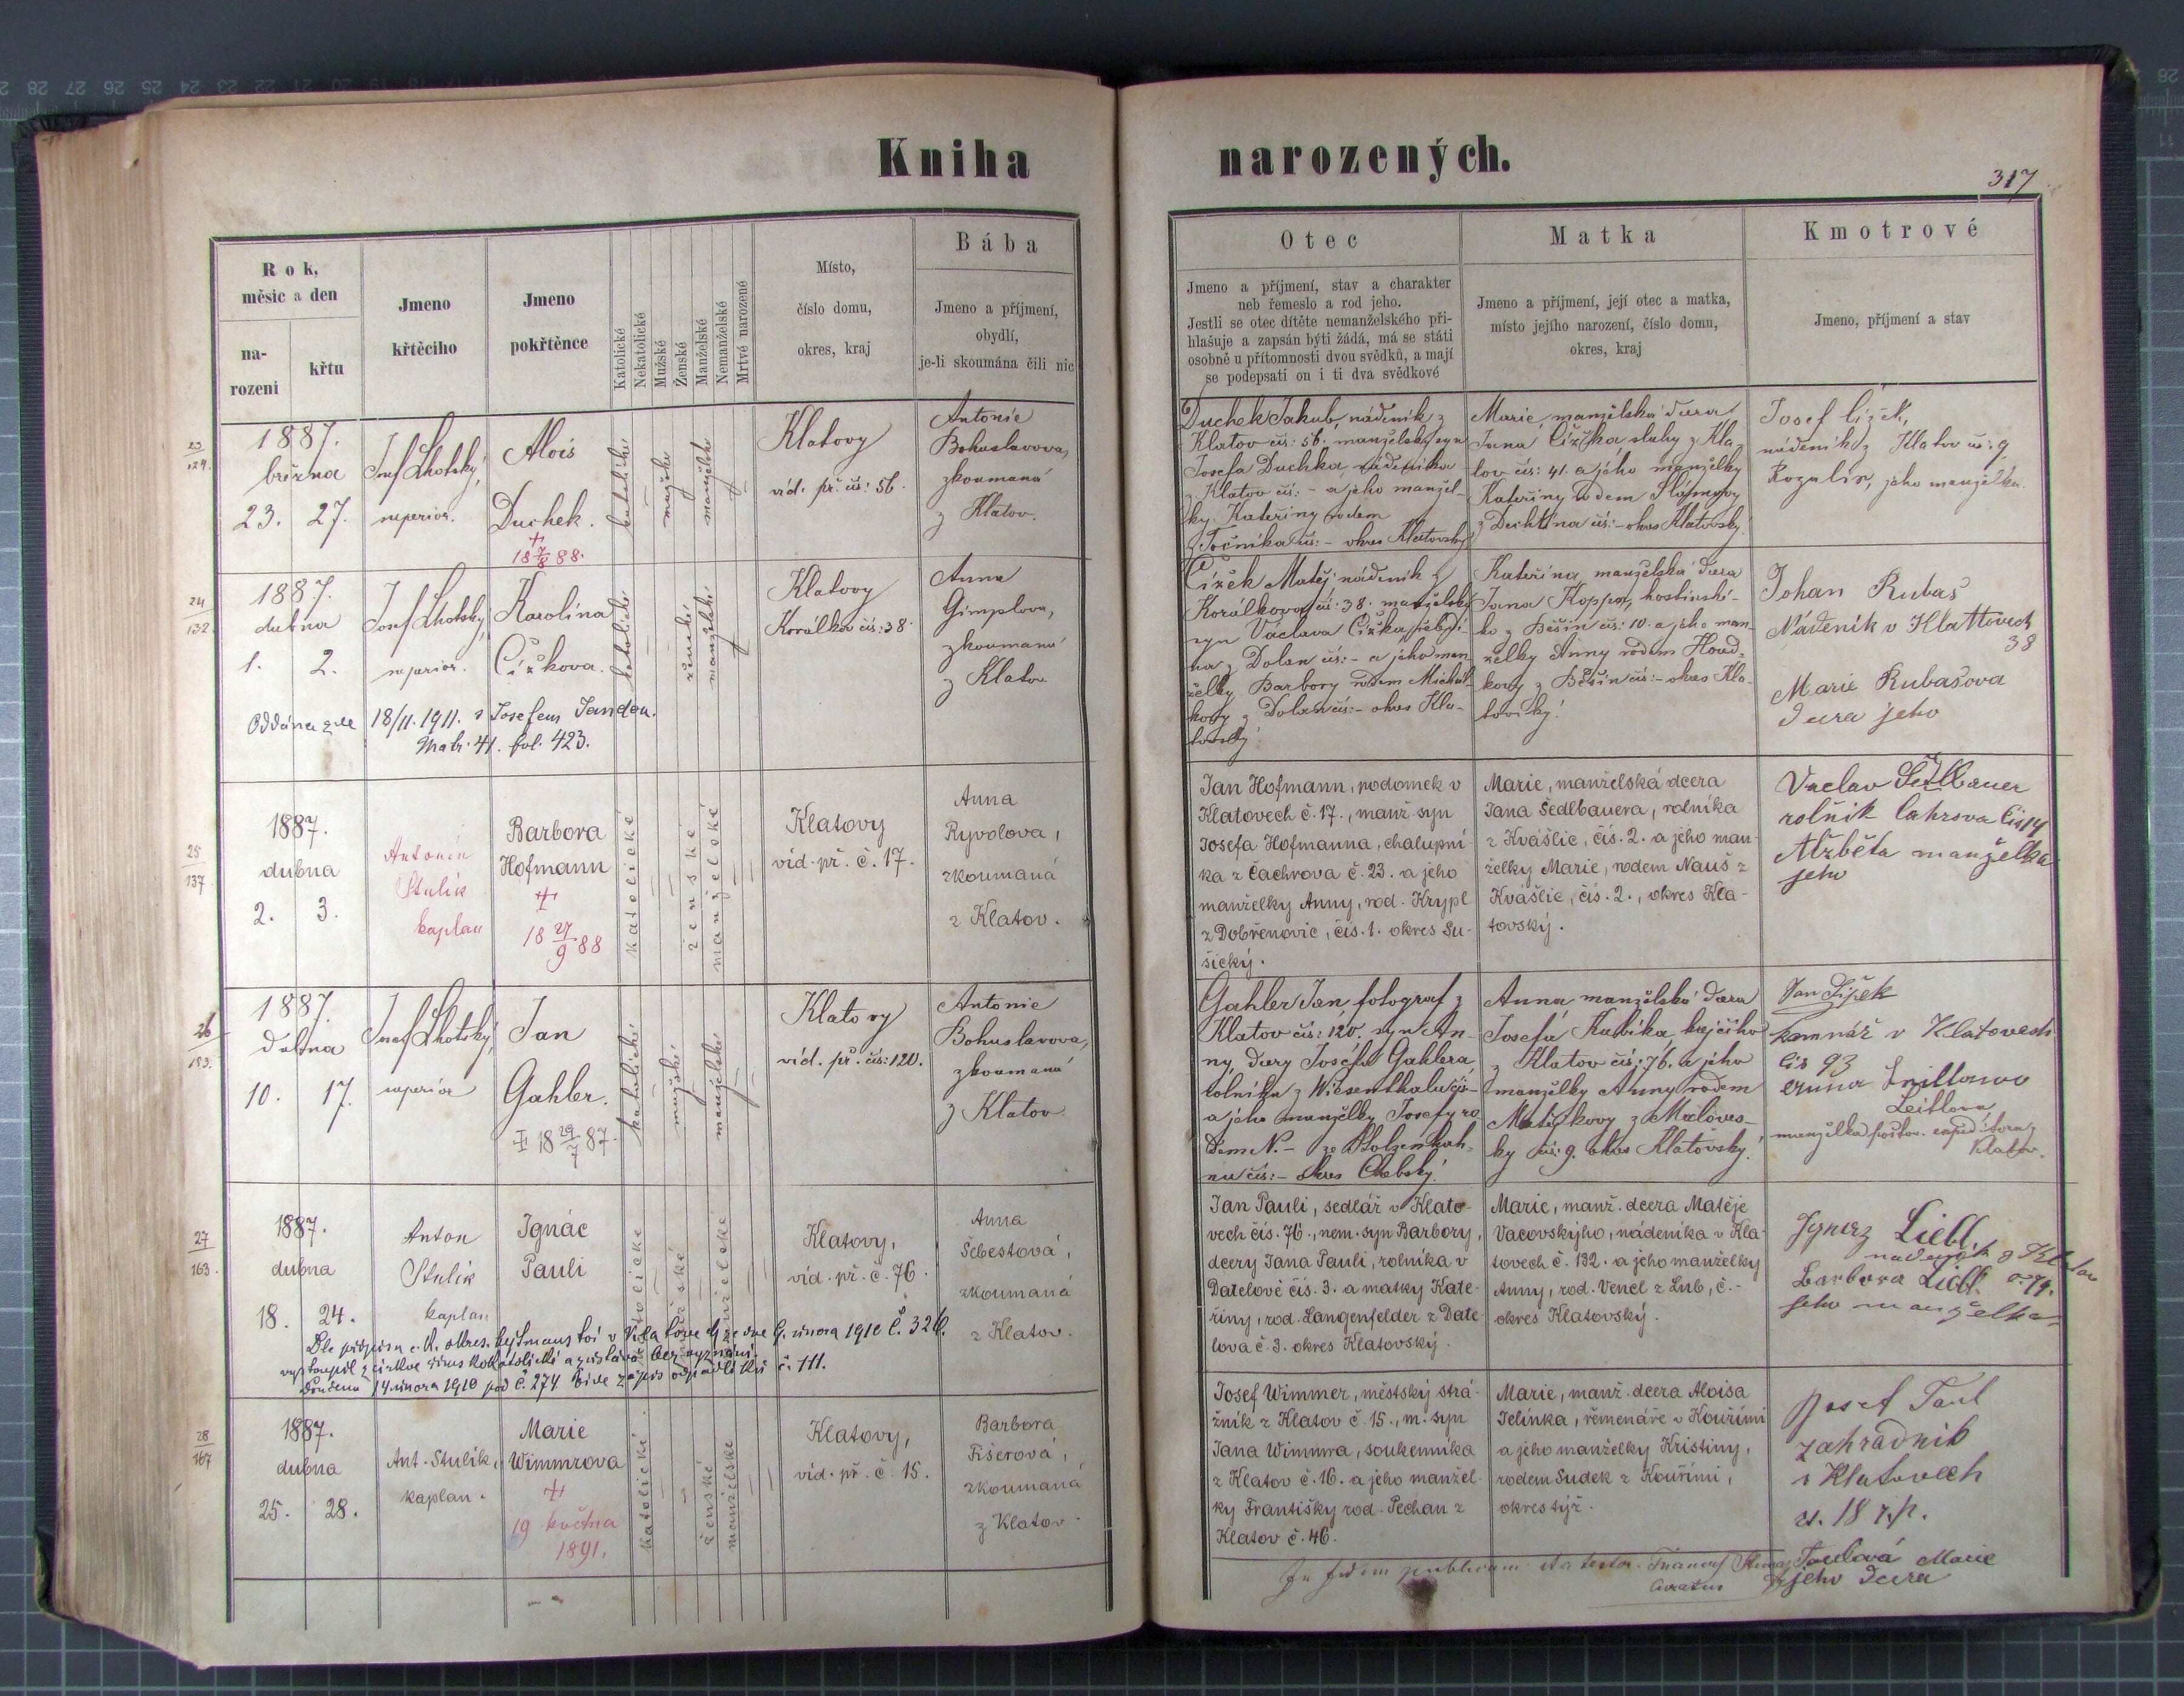 Kniha narozených.
317
Rok,
měsíc a den
na-
rozeni
křtu
Jmeno
křtěcího
Jmeno
pokřtěnce
Katolické
Nekatolické
Mužské
Ženské
Manželské
Nemanželské
Mrtvé narozené
Místo,
číslo domu,
okres, kraj
Bába
Jmeno a příjmení,
obydlí,
je-li skoumána čili nic
Otec
Jmeno a příjmení, stav a charakter
neb řemeslo a rod jeho.
Jestli se otec dítěte nemanželského při-
hlašuje a zapsán býti žádá, má se státi
osobně u přítomnosti dvou svědků, a mají
se podepsati on i ti dva svědkové
Matka
Jmeno a příjmení, její otec a matka,
místo jejího narození, číslo domu,
okres, kraj
Kmotrové
Jmeno, příjmení a stav
23
129.
1887.
března
23. 27.
Josef Lhotský,
superior.
Alois
Duchek.
+
18 7/8 88.
katolické
mužské
manželské
Klatovy
víd. př. čís: 56.
Antonie
Bohuslavova,
zkoumaná
z Klatov.
Duchek Jakub, nádeník z
Klatov čís: 56. manželský syn
Josefa Duchka nádeníka
z Klatov čís: - a jeho manžel-
ky Kateřiny rodem
z Točníka čís: - okres Klatovský
Marie, manželská dcera
Jana Čížka sluhy z Kla-
tov čís: 41. a jeho manželky
Kateřiny rodem
z Dechtína čís: - okres Klatovský.
Josef Čížek,
nádeník z Klatov čís: 9
Rozalie, jeho manželka.
24
132
1887.
dubna
1. 2.
Josef Lhotský,
superior.
Karolína
Čížkova.
katolické
ženské
manželské
Klatovy
Korálkov čís: 38
Anna
Gimplova,
zkoumaná
z Klatov
Oddána zde 18/11. 1911. s Josefem Jandou.
Matr. 41. fol. 423.
Čížek Matěj nádeník z
Korálkova čís: 38. manželský
syn Václava Čížka,
z Dolan čís: - a jeho man
želky Barbory rodem Michál-
kovy z Dolan čís: - okres Kla-
tovský
Kateřina manželská dcera
Jana Koppa, hostinské-
ho z Běšin čís: 10. a jeho man
želky Anny rodem Houd-
kovy z Běšin čís: - okres Kla-
tovský!
Johan Rubaš
Nádeník v Klattovech
38
Marie Rubašova
dcera jeho
25
137
1887.
dubna
2. 3.
Antonín
Stulík
kaplan
Barbora
Hofmann
+
18 27/9 88
katolické
ženské
manželské
Klatovy
víd. př. č. 17.
Anna
Ryvolova,
zkoumaná
z Klatov.
Jan Hofmann, podomek v
Klatovech č. 17., manž syn
Josefa Hofmanna, chalupní
ka z Čachrova č. 23. a jeho
manželky Anny, rod. Krypl
z Dobřenovic, čís. 1. okres Su-
šický.
Marie, manželská dcera
Jana Sedlbauera, rolníka
z Kvášlic, čís. 2. a jeho man-
želky Marie, rodem Nauš z
Kvášlic, čís. 2., okres Kla-
tovský.
Vaclav Sedlbauer
rolník Čahrova čis 14
Alžběta manželka
jeho
26
153.
1887.
Dubna
10. 17.
Josef Lhotský,
superior
Jan
Gahler.
+ 18 29/7 87.
katolické
mužské
manželské
Klatovy
víd. př. čís: 120.
Antonie
Bohuslavova,
zkoumaná
z Klatov
Gahler Jan, fotograf z
Klatov čís: 120, syn An-
ny, dcery Josefa Gahlera
rolníka z Wiesenthalu čís-
a jeho manželky Josefy ro
dem N. - ze
čís: - okres Chebský!
Anna manželská dcera
Josefa Kubíka, krejčího
z Klatov čís: 76. a jeho
manželky Anny rodem
Matějkovy z Maloves-
ky čís: 9. okres Klatovský.
Jan Šípek
v Klatovech
čis 93
Anna
Leitlova,
manželka poštov. expeditora z
Klatov.
27
163
1887.
dubna
18. 24.
Anton
Stulík
kaplan
Ignác
Pauli
katolické
mužské
manželské
Klatovy,
víd. př. č. 76.
Anna
Šebestová,
zkoumaná
z Klatov.
Dle přípisu c. k. okres. hejtmanství v Klatovech ze dne 9. února 1910 č. 3266.
vystoupil z církve římskokatolické a zůstává bez vyznání.
Doručeno 14. února 1910 pod č. 274. Vide zápis odpadlíků č. 111.
Jan Pauli, sedlář v Klato-
vech čís. 76., nem. syn Barbory,
dcery Jana Pauli, rolníka v
Datelově čís. 3. a matky Kate-
řiny, rod. Langenfelder z Date
lova č. 3. okres Klatovský.
Marie, manž. dcera Matěje
Vacovskýho, nádeníka v Kla-
tovech č. 132. a jeho manželky
Anny, rod. Vencl z Lub, č. -
okres Klatovský.
Ignaz Liebl.
nadeník z Klatov
Barbora Liebl. č. 74.
jeho manželka
28
167
1887.
dubna
25. 28.
Ant. Stulík,
kaplan.
Marie
Wimmrova
+
19 května
1891.
katolické.
ženské
manželské
Klatovy,
víd. př. č. 15.
Barbora
Fišerová,
zkoumaná
z Klatov.
Josef Wimmer, městský strá-
žník z Klatov č. 15., m. syn
Jana Wimmra, soukenníka
z Klatov č. 16. a jeho manžel-
ky Františky rod. Pechan z
Klatov č. 46.
Marie, manž. dcera Aloisa
Jelínka, řemenáře v Kouřimi
a jeho manželky Kristiny,
rodem Sudek z Kouřimi,
okres týž.
Josef Taul
zahradník
v Klatovech
čí. 18
Taulová Marie
jeho dcera
In fidem publicam